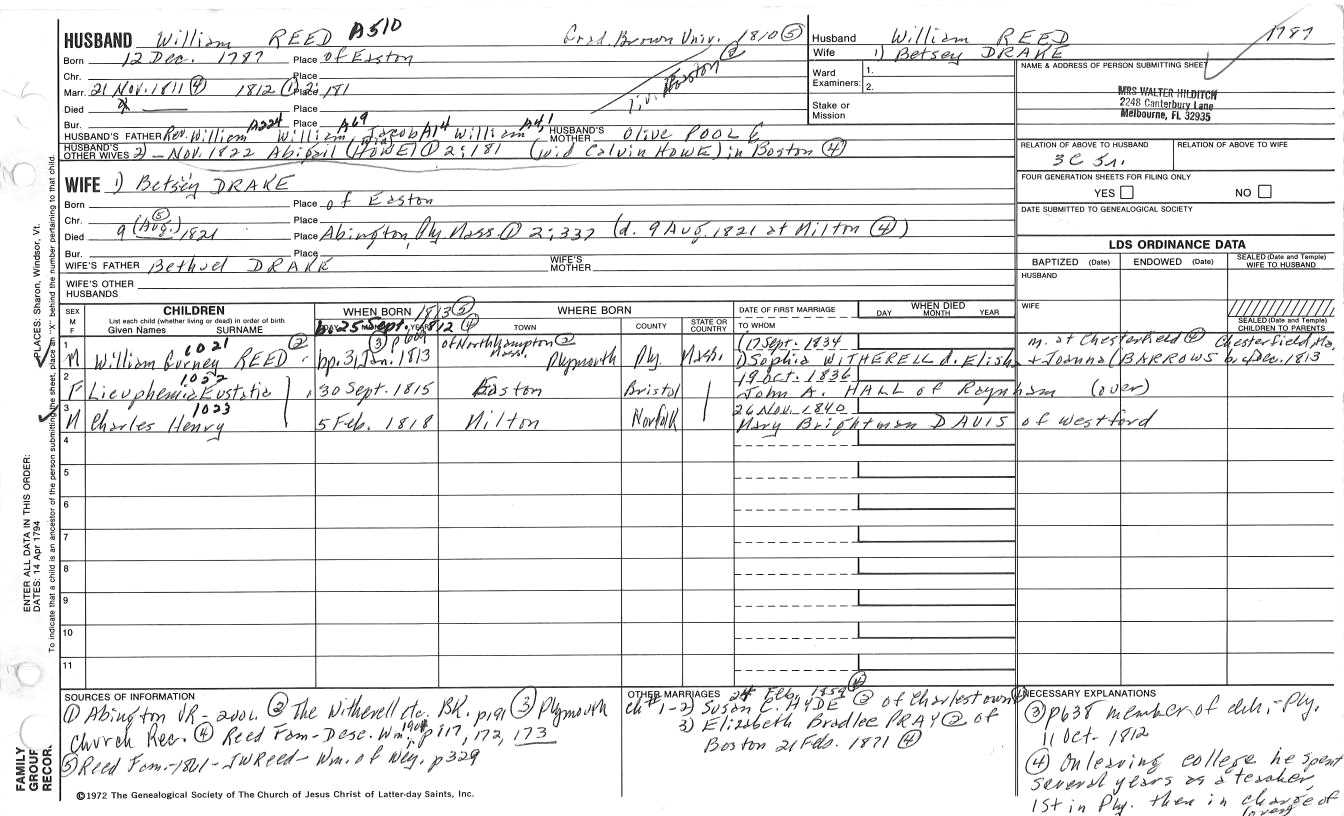 HUSBAND William REED A510 Grad. Brown Univ. 1810 ⑤
Born 12 Dec. 1787 Place of Easton
Chr. Place
Marr. 21 Nov. 1811 ④ 1812 ① Place 2:181
liv. Boston ②
Died Place
Bur. Place
HUSBAND'S FATHER Rev. William A224 William A69 Jacob A14 William A4,1 HUSBAND'S MOTHER Olive POOLE
HUSBAND'S OTHER WIVES 2) – Nov. 1822 Abigail (HOWE) ① 2:181 (wid Calvin HOWE) in Boston ④
WIFE 1) Betsey DRAKE
Born Place of Easton
Chr. Place
Died 9 (Aug.) ⑤ 1821 Place Abington, Ply. Mass. ① 2:337 (d. 9 Aug. 1821 at Milton ④)
Bur. Place
WIFE'S FATHER Bethuel DRAKE WIFE'S MOTHER
WIFE'S OTHER HUSBANDS
Husband William REED 1787
Wife 1) Betsey DRAKE
Ward Examiners: 1.
2.
Stake or Mission
NAME & ADDRESS OF PERSON SUBMITTING SHEET
MRS WALTER HILDITCH
2248 Canterbury Lane
Melbourne, FL 32935
RELATION OF ABOVE TO HUSBAND RELATION OF ABOVE TO WIFE
3C 5r.
FOUR GENERATION SHEETS FOR FILING ONLY
YES NO
DATE SUBMITTED TO GENEALOGICAL SOCIETY
LDS ORDINANCE DATA
BAPTIZED (Date) ENDOWED (Date) SEALED (Date and Temple) WIFE TO HUSBAND
HUSBAND
WIFE
SEALED (Date and Temple) CHILDREN TO PARENTS
SEX M F CHILDREN
List each child (whether living or dead) in order of birth
Given Names SURNAME
WHEN BORN 1813 ⑤
DAY MONTH YEAR
b. 25 Sept. 1812 ④
WHERE BORN
TOWN COUNTY STATE OR COUNTRY
DATE OF FIRST MARRIAGE
TO WHOM
WHEN DIED
DAY MONTH YEAR
1 M 1021 William Gurney REED ② bp. 31 Jan. 1813 ③ p609 of Northhampton ② Mass. Plymouth Ply. Mass. 17 Sept. 1834 m. at Chesterfield ④ Chesterfield, Ma.
1) Sophia WITHERELL d. Elisha + Joanna (BARROWS b. 4 Dec. 1813
2 F 1022 Lieuphemia Eustatia 30 Sept. 1815 Easton Bristol 19 Oct. 1836
John A. HALL of Raynham (over)
3 M 1023 Charles Henry 5 Feb. 1818 Milton Norfolk 26 Nov. 1840
Mary Brightman DAVIS of Westford
4
5
6
7
8
9
10
11
SOURCES OF INFORMATION
① Abington VR – 2vol. ② The Witherell etc. BK. p191 ③ Plymouth
Church Rec. ④ Reed Fam – Desc. Wm. 1901 p117, 172, 173
⑤ Reed Fam. – 1861 – JWReed – Wm. of Wey. p329
OTHER MARRIAGES 24 Feb. 1859 ④
ch #1 – 2) Susan E. HYDE ② of Charlestown
3) Elizabeth Bradlee PRAY ② of
Boston 21 Feb. 1871 ④
NECESSARY EXPLANATIONS
③ p638 member of chh. – Ply.
11 Oct. 1812
④ On leaving college he spent
several years as a teacher,
1st in Ply. then in charge of
(over)
©1972 The Genealogical Society of The Church of Jesus Christ of Latter-day Saints, Inc.
FAMILY GROUP RECOR.
ENTER ALL DATA IN THIS ORDER:
DATES: 14 Apr 1794
PLACES: Sharon, Windsor, Vt.
To indicate that a child is an ancestor of the person submitting the sheet, place an "X" behind the number pertaining to that child.